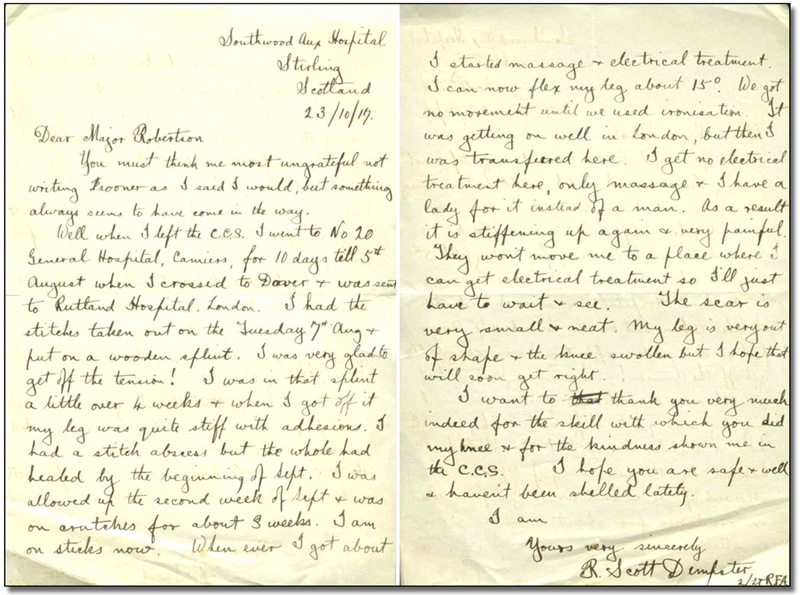 Southwood Aux Hospital
Stirling
Scotland
23/10/17.
Dear Major Robertson
You must think me most ungrateful not
writing sooner as I said I would, but something
always seems to have come in the way.
Well when I left the C.C.S. I went to No 20
General Hospital, Camiers, for 10 days till 5th
August when I crossed to Dover & was sent
to Rutland Hospital. London. I had the
stitches taken out on the Tuesday 7th Aug &
put on a wooden splint. I was very glad to
get off the tension! I was in that splint
a little over 4 weeks & when I got off it
my leg was quite stiff with adhesions. I
had a stitch abscess but the whole had
healed by the beginning of Sept. I was
allowed up the second week of Sept & was
on crutches for about 3 weeks. I am
on sticks now. When ever I got about
I started massage & electrical treatment.
I can now flex my leg about 15°. We got
no movement until we used ironisation. It
was getting on well in London, but then I
was transferred here. I get no electrical
treatment here, only massage & I have a
lady for it instead of a man. As a result
it is stiffening up again & very painful.
They won't move me to a place where I
can get electrical treatment so I'll just
have to wait & see. The scar is
very small & neat. My leg is very out
of shape & the knee swollen but I hope that
will soon get right.
I want to that thank you very much
indeed for the skill with which you did
my knee & for the kindness shown me in
the C.C.S. I hope you are safe & well
& haven't been shelled lately.
I am
Yours very sincerely
R. Scott Dempster
2/Lt RFA